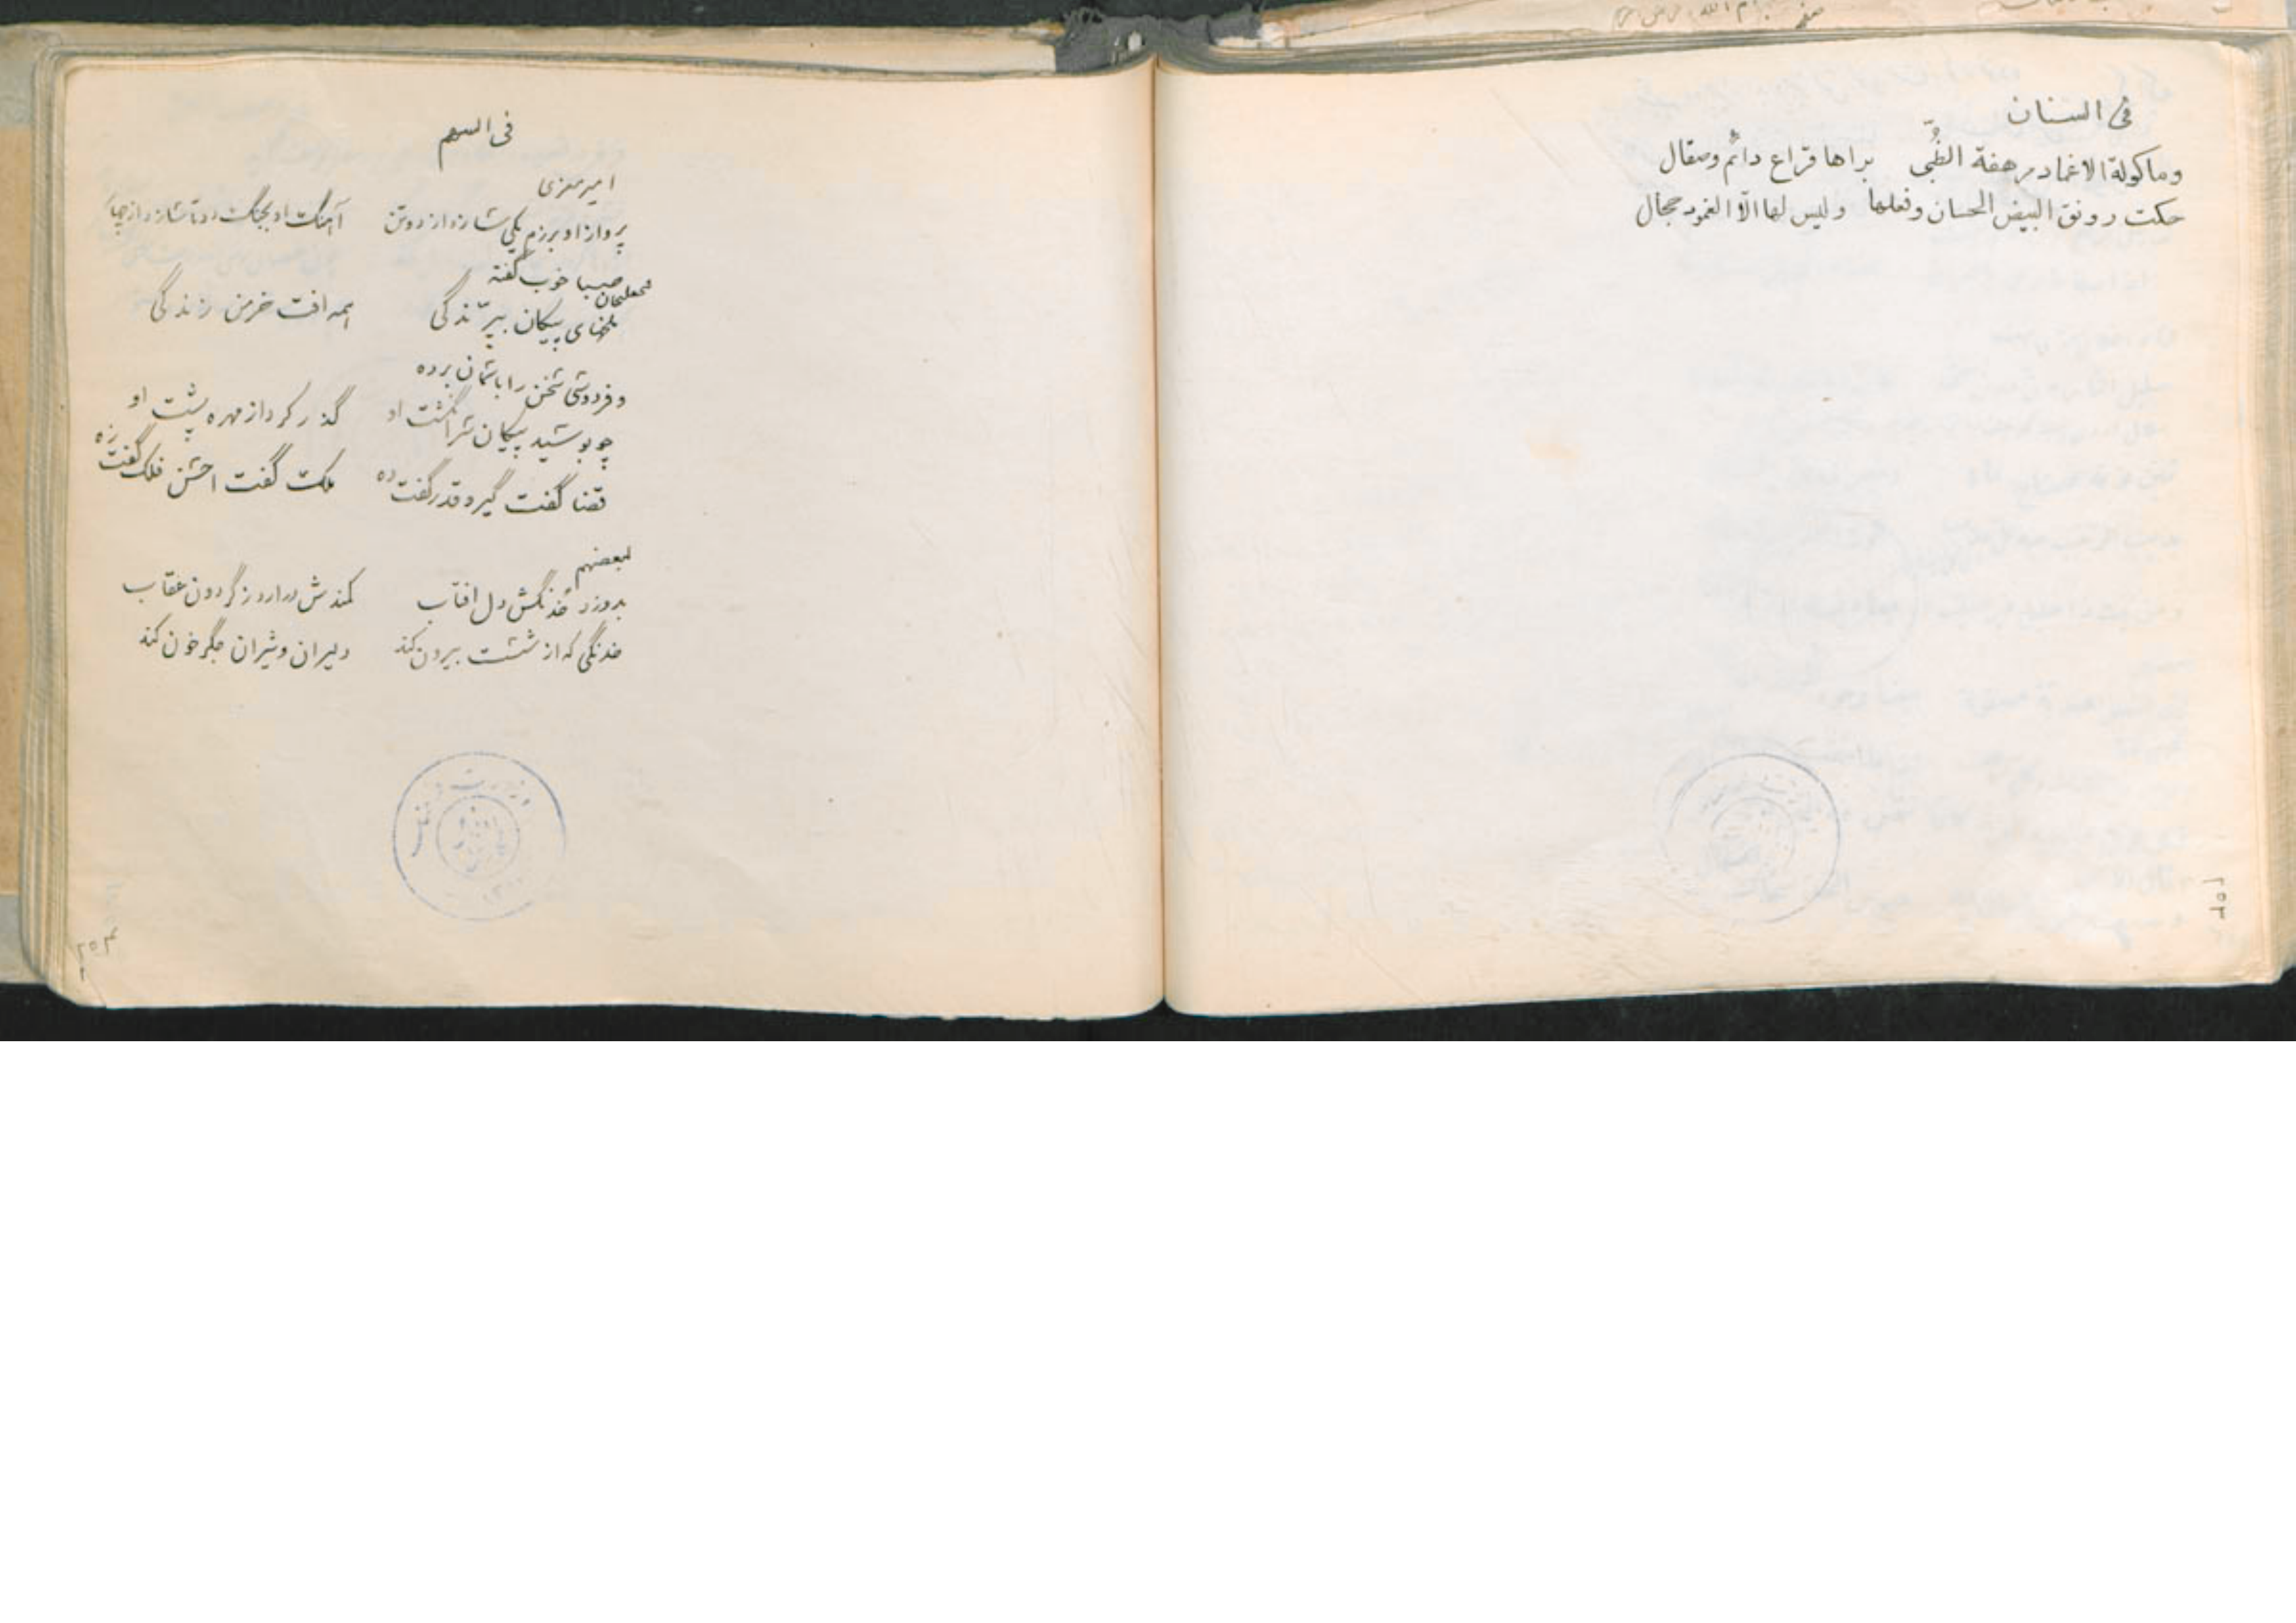 فی السنان
وماکولة الاغماد مرهفة الظُّبی براها قراع دائم وصقال
حکت رونق البیض الحسان وفعلها ولیس لها الّا الغمود حجال
فی السهم
امیر معزی
پرواز او برزم یکی سازد از دو تن آهنگ او بجنگ دو تا سازد از چهار
صبا خوب گفته
پیکان بپرّندگی همه افت خرمن زندگی
و فردوسی سخن را باسمان برده
چو بوسید پیکان سرانگشت او گذر کرد از مهره پشت او
قضا گفت گیر و قدر گفت ده ملک گفت احسن فلک گفت زه
لبعضهم
بدوزد خدنگش دل افتاب کمندش درارد ز گردون عقاب
خدنگی که از شست بیرون کند دلیران و شیران جگر خون کند
۲۵۳
۲۵۴